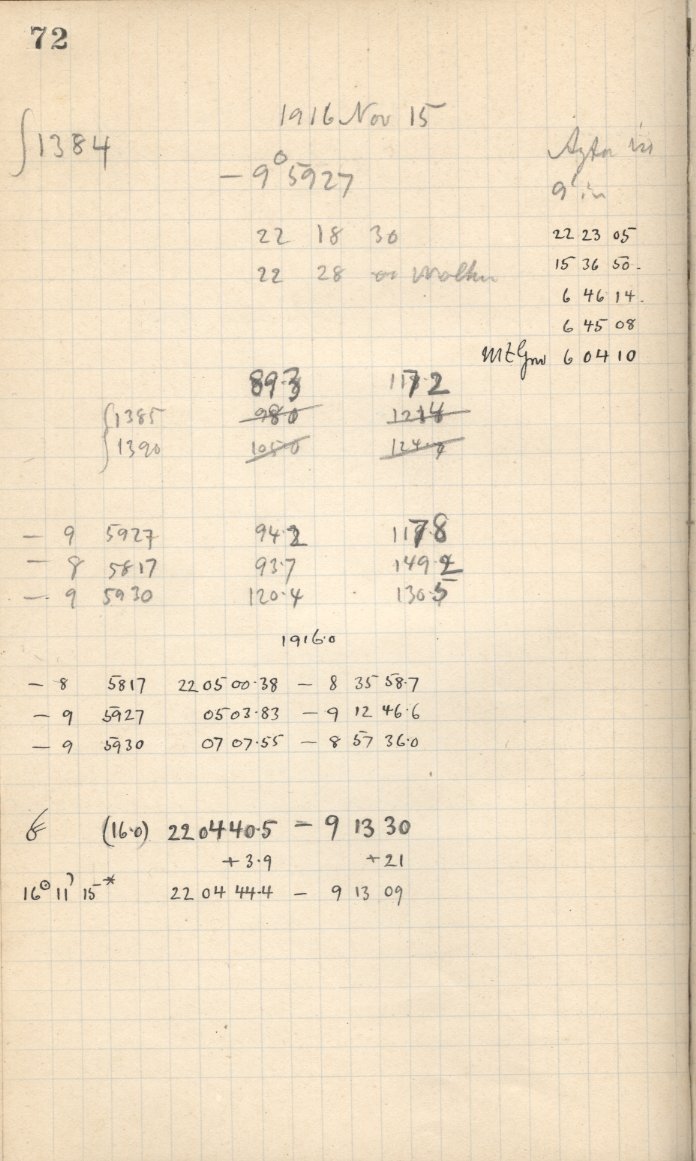 72
1916 Nov 15
∫1384
9 in
- 9° 5927
22 18 30
22 23 05
22 28
15 36 50.
6 46 14.
6 45 08
6 04 10
89.3 117.2
∫1385 98.0 121.8
∫1390 105.0 124.7
- 9 5927 94.2 117.8
- 8 5817 93.7 149.2
- 9 5930 120.4 130.5
1916.0
- 8 5817 22 05 00.38 - 8 35 58.7
- 9 5927 05 03.83 - 9 12 46.6
- 9 5930 07 07.55 - 8 57 36.0
(16.0) 22 04 40.5 - 9 13 30
+ 3.9 + 21
16 11 15* 22 04 44.4 - 9 13 09